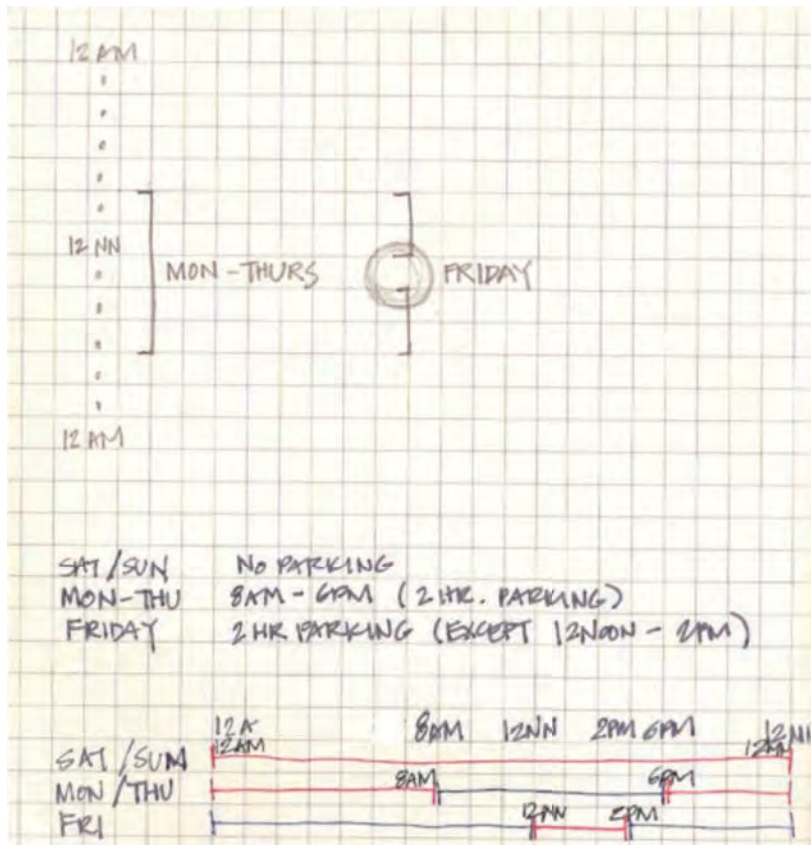 12 AM
12 NN
MON - THURS
FRIDAY
12 AM
SAT/SUN NO PARKING
MON-THU 8AM - 6PM (2 HR. PARKING)
FRIDAY 2 HR PARKING (EXCEPT 12NOON - 2PM)
12A 8AM 12NN 2PM 6PM
SAT/SUN 12AM
MON/THU 8AM 6PM
FRI 12NN 2PM